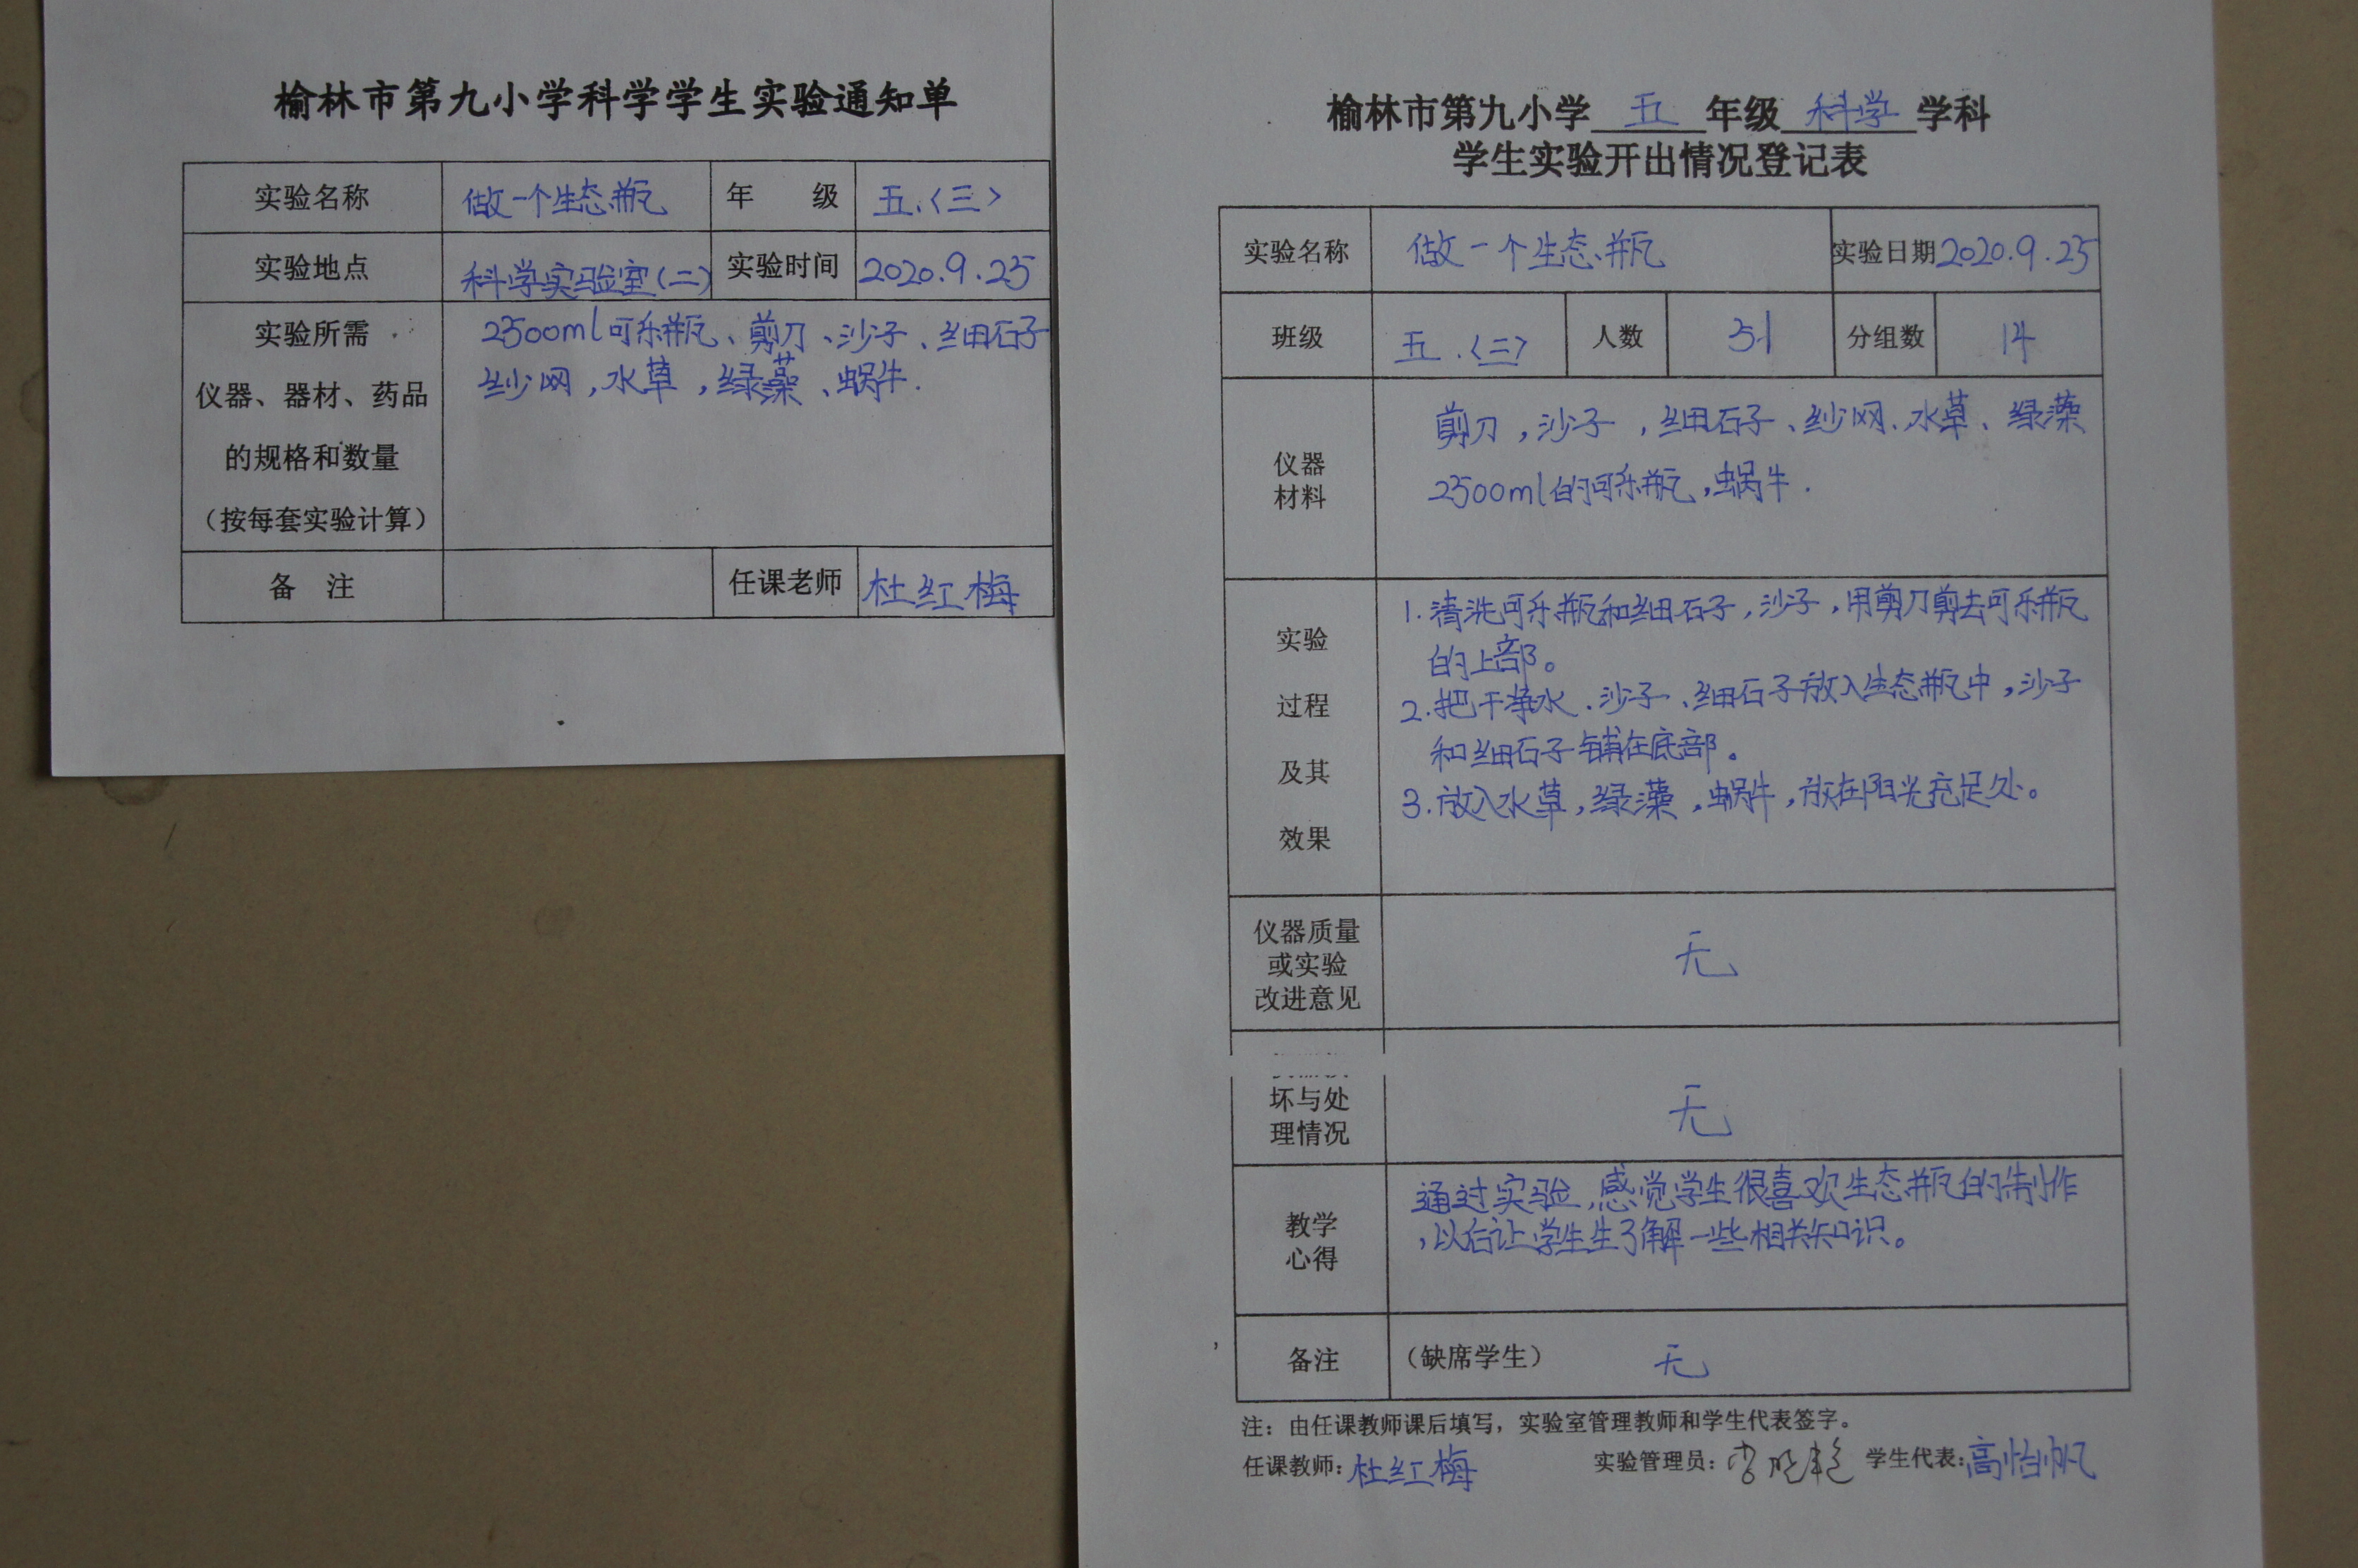 榆林市第九小学科学学生实验通知单
实验名称 做一个生态瓶 年 级 五.〈三〉
实验地点 科学实验室(二) 实验时间 2020.9.25
实验所需
仪器、器材、药品
的规格和数量
（按每套实验计算）
2500ml可乐瓶、剪刀、沙子、细石子
纱网,水草,绿藻、蜗牛.
备 注 任课老师 杜红梅
榆林市第九小学 五 年级 科学 学科
学生实验开出情况登记表
实验名称 做一个生态瓶 实验日期 2020.9.25
班级 五.〈三〉 人数 51 分组数 14
仪器
材料
剪刀,沙子,细石子、纱网、水草、绿藻
2500ml的可乐瓶,蜗牛.
实验
过程
及其
效果
1.清洗可乐瓶和细石子,沙子,用剪刀剪去可乐瓶
的上部。
2.把干净水、沙子、细石子放入生态瓶中,沙子
和细石子铺在底部。
3.放入水草,绿藻,蜗牛,放在阳光充足处。
仪器质量
或实验
改进意见
无
坏与处
理情况
无
教学
心得
通过实验,感觉学生很喜欢生态瓶的制作
,以后让学生生了解一些相关知识。
备注 （缺席学生） 无
注：由任课教师课后填写，实验室管理教师和学生代表签字。
任课教师：杜红梅 实验管理员： 学生代表：高怡帆